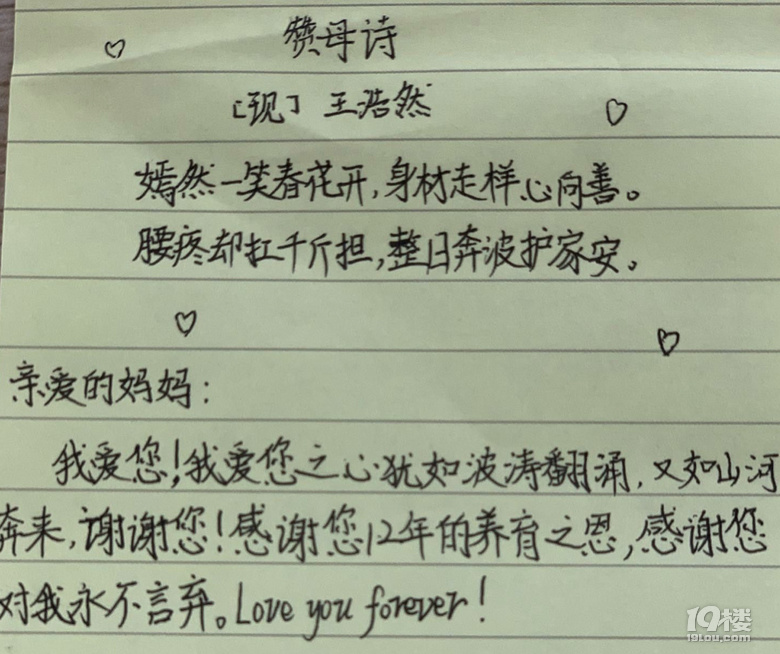 赞母诗
[现] 王浩然
嫣然一笑春花开,身材走样心向善。
腰疼却扛千斤担,整日奔波护家安。
亲爱的妈妈:
我爱您!我爱您之心犹如波涛翻涌,又如山河
奔来,谢谢您!感谢您12年的养育之恩,感谢您
对我永不言弃。Love you forever!
19楼
19lou.com